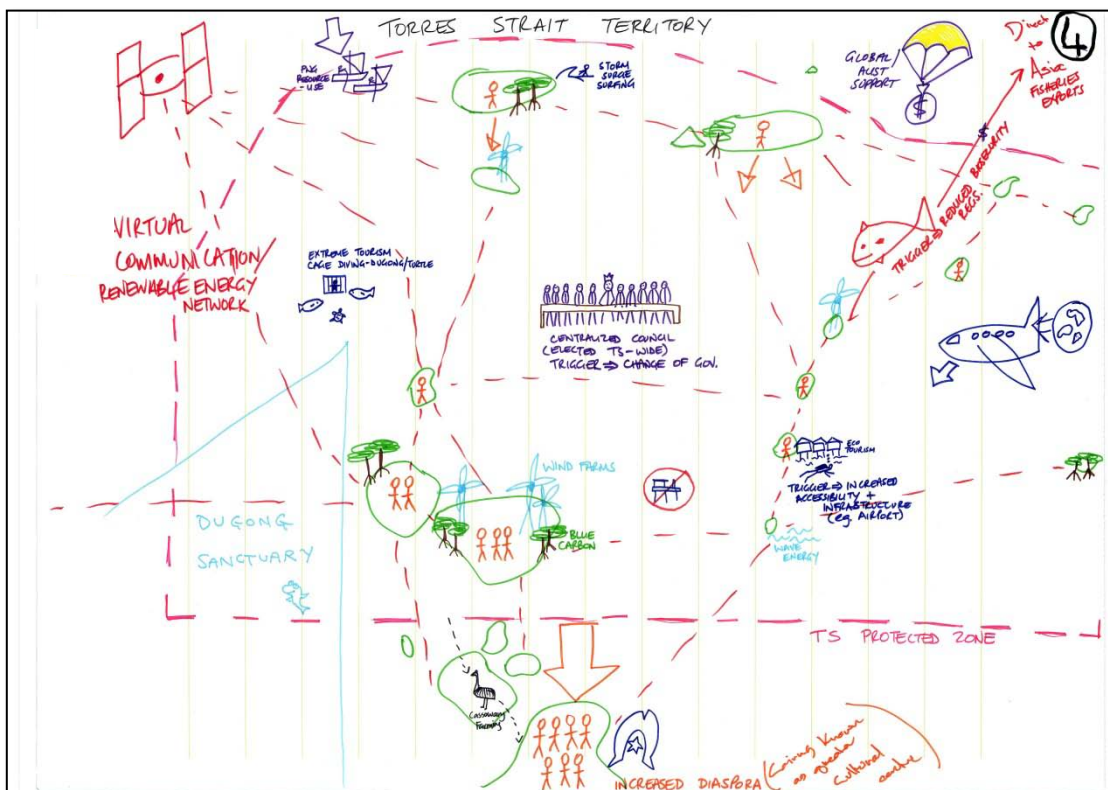 TORRES STRAIT TERRITORY
4
Direct
to
Asia
FISHERIES
EXPORTS
PNG
RESOURCE
-USE
STORM
SURGE
SURFING
GLOBAL
SUPPORT
$
$
TRIGGER ⇒ REDUCED BIOSECURITY
REGS.
VIRTUAL
COMMUNICATION
RENEWABLE ENERGY
NETWORK
EXTREME TOURISM
CAGE DIVING-DUGONG/TURTLE
CENTRALIZED COUNCIL
(ELECTED TS-WIDE)
TRIGGER ⇒ CHANGE OF GOV.
WIND FARMS
ECO
TOURISM
TRIGGER ⇒ INCREASED
ACCESSIBILITY +
INFRASTRUCTURE
(eg. AIRPORT)
BLUE
CARBON
WAVE
ENERGY
DUGONG
SANCTUARY
TS PROTECTED ZONE
Cassowary
INCREASED DIASPORA
as greater
cultural
centre